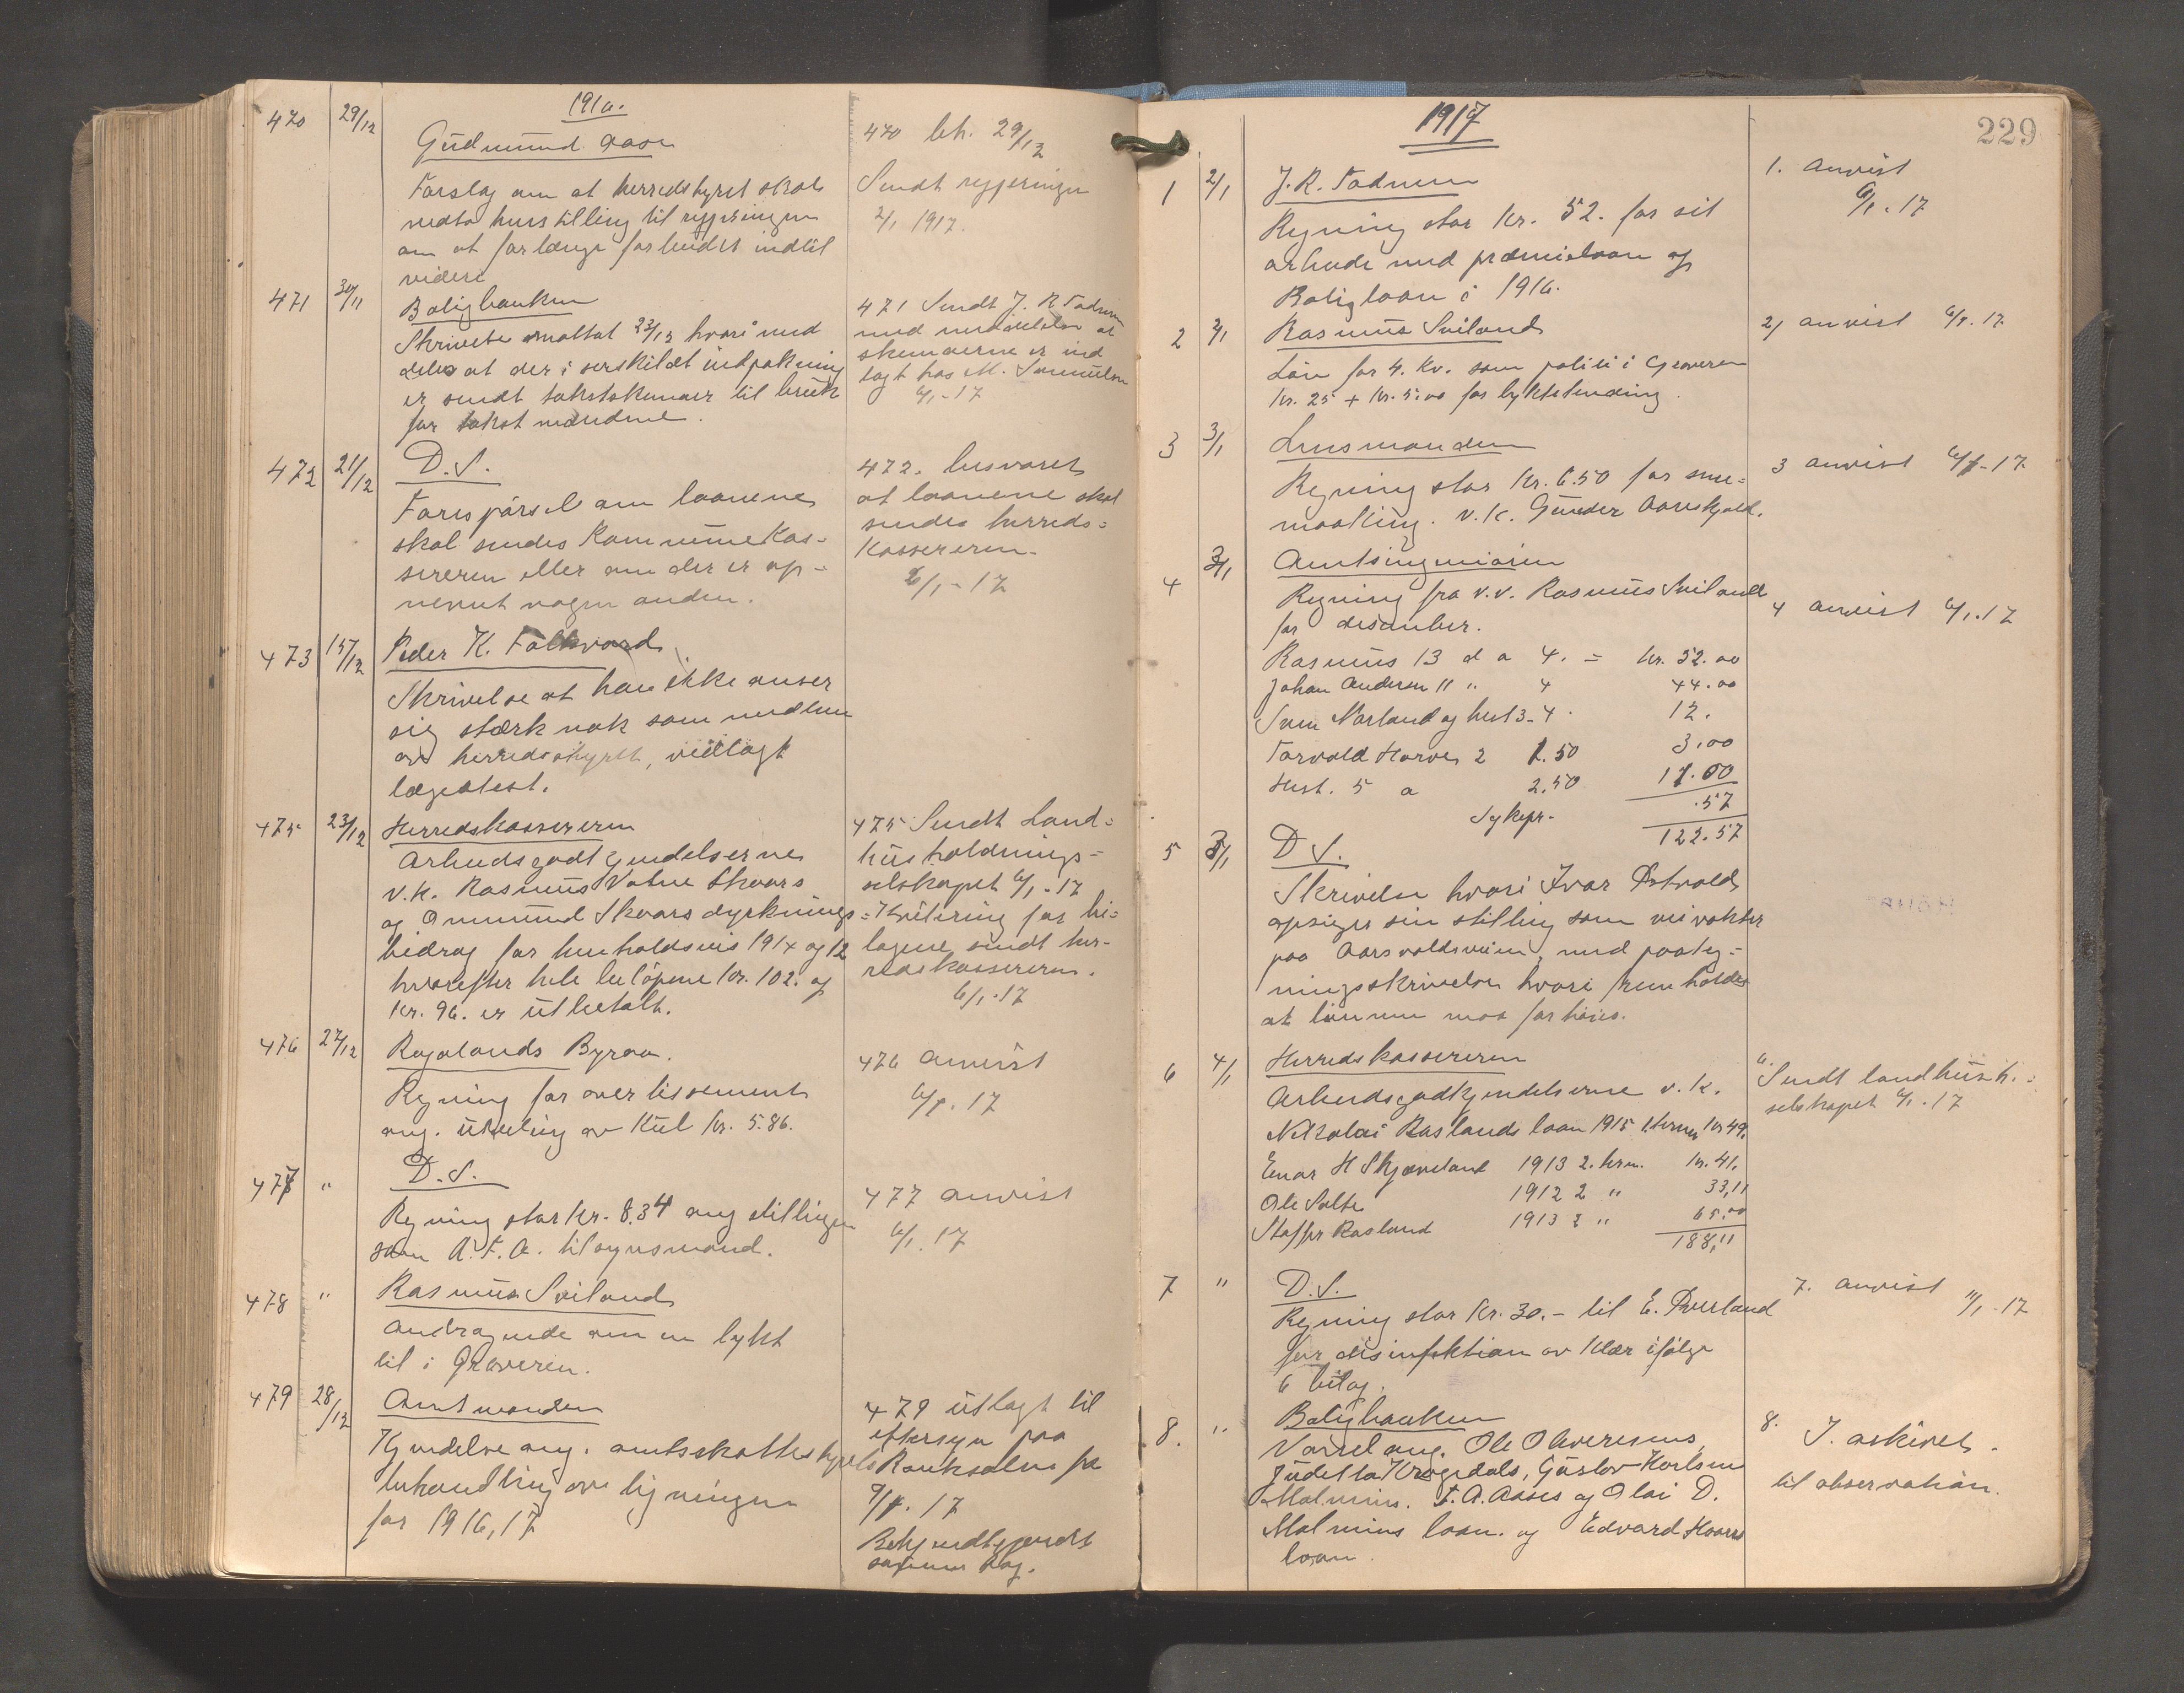 1916.
470 29/12 Gudmund Aase
Forslag om at herredstyret skal
vedta henstilling til regjeringen
om at forlænge forbudet indtil
videre
470 beh. 29/12
Sendt regjeringen
2/1 1917.
471 30/11 Boligbanken
Skrivelse mottat 23/12 hvori med
deles at der i serskildt indpakning
er sendt takstskemaer til bruk
for takstmændene.
471 Sendt J. R. Tadnem
med meddelelse at
skemaerne er ind
lagt hos M. Samuelsen
6/1-17
472 21/12 D. S.
Forespørsel om laanene
skal sendes Kommunekas-
sereren eller om der er op-
nevnt nogen anden.
472. besvaret
at laanene skal
sendes herreds=
kassereren.
6/1-17
473 15/12 Peder K. Folkvord
Skrivelse at han ikke anser
sig stærk nok som medlem
av herredsstyret, vedlagt
lægeatest.
475 23/12 Herredskassereren
Arbeidsgodkjendelserne
v.k. Rasmus Vatne Skaars
og Ommund Skaars dyrknings=
bidrag for henholdsvis 1914 og 12
hvorefter hele beløpene kr. 102. og
kr. 96. er utbetalt.
475 Sendt Land=
husholdnings=
selskapet 6/1-17
Kvitering for bi=
lagene sendt her-
redskassereren.
6/1.17
476 27/12 Rogalands Byraa.
Regning for avertissement
ang. utdeling av Kul kr. 5.86.
476 anvist
6/1.17
477 " D. S.
Regning stor kr. 8.34 ang stillingen
som A. F. A. tilsynsmand.
477 anvist
6/1.17
478 " Rasmus Sviland
Andragende om en lykt
til i Graveren.
479 28/12 Amtmanden
Kjendelse ang. amtsskattestyrets
behandling av ligningen
for 1916,17
479 utlagt til
eftersyn paa
Banksalen fra
9/1.17
Bekjendtgjordt
samme dag.
1917
229
1 2/1 J. R. Tadnem
Regning stor kr. 52. for sit
arbeide med præmielaan og
Boliglaan i 1916.
1. anvist
6/1.17
2 2/1 Rasmus Sviland
Løn for 4. Kv. som politi i Graveren
kr. 25 + kr. 5.00 for lyktetending.
2, anvist 6/1.17
3 3/1 Lensmanden
Regning stor kr. 6.50 for sne=
maaking. v.k. Gunder Aarskjold.
3 anvist 6/1-17
4 3/1 Amtsingeniøren
Regning fra v.v. Rasmus Sviland
for desember.
4 anvist 6/1.17
Rasmus 13 d a 4. = kr. 52.00
Johan Andersen 11 " 4 44.00
Sven Norland og hest 3-4. 12.
Torvald Harves 2 1.50 3.00
Hest. 5 a 2.50 11.00
Sykepr. .57
122.57
5 3/1 D. S.
Skrivelse hvori Ivar Østvold
opsiger sin stilling som veivokter
paa Aarsvoldsveien, med paateg=
ningsskrivelse hvori fremholdes
at lønnen maa forhøies.
6 4/1 Herredskassereren
Arbeidsgodkjendelserne v. k.
Nikolai Raslands laan 1915 1. termin kr 49.
Enar H Skjæveland 1913 2. term. kr. 41.
Ole Salte 1912 2 " 33,11
Staffer Rasland 1913 2 " 65.00
188,11
6. Sendt landhush.=
selskapet 6/1.17
7 " D. S.
Regning stor kr. 30.- til E. Øverland
for disinfektion av klær ifølge
6 bilag.
7. anvist 11/1-17
8. " Boligbanken
Varsel ang. Ole Olweresens,
Judetta Krogedals, Gustav Karlsen
Malmins. T. A. Aases og Olai D.
Malmins laan. og Edvard Hoaas
laan.
8. I. arkivet.
til observation.